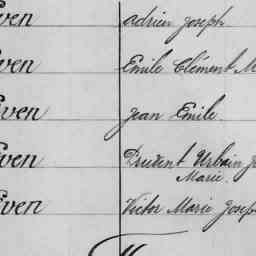 Even Adrien Joseph
Even Emile Clément M
Even Jean Emile.
Even Prudent Urbain J
Marie.
Even Victor Marie Josep